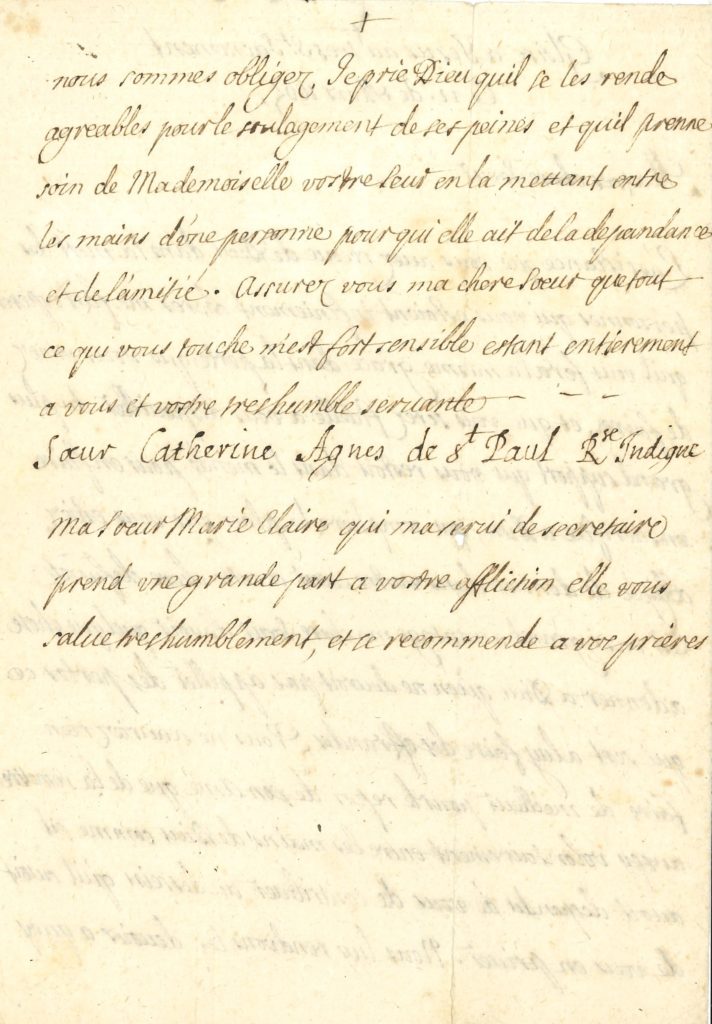 +
nous sommes obligez, Je prie Dieu quil se les rende
agreables pour le soulagement de ses peines et quil prenne
soin de Mademoiselle vostre seur en la mettant entre
les mains d'une personne pour qui elle ait de la dependance
et de l'amitié. Assurez vous ma chere soeur que tout
ce qui vous touche m'est fort sensible estant entierement
a vous et vostre treshumble seruante - - -
Sœur Catherine Agnes de St Paul Rse Indigne
Ma soeur Marie Claire qui ma serui de secretaire
prend vne grande part a vostre affliction elle vous
salue treshumblement, et se recommende a voz prieres